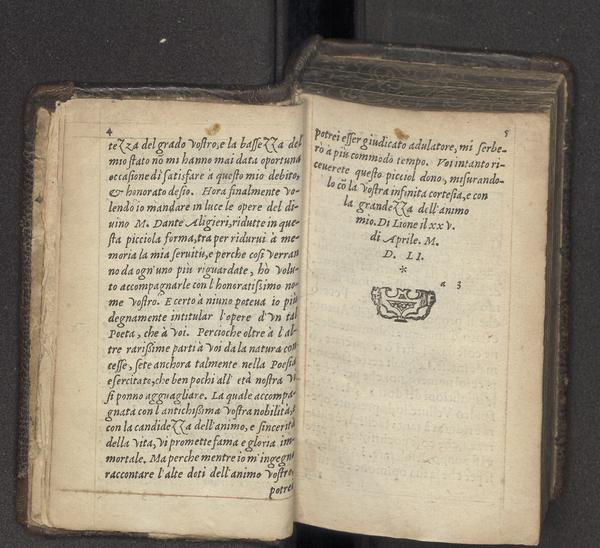 4
tezza del grado vostro, e la bassezza del
mio stato nō mi hanno mai data oportuna
occasione di satisfare à questo mio debito,
& honorato desio. Hora finalmente vo-
lendo io mandare in luce le opere del di-
uino M. Dante Aligieri, ridutte in que-
sta picciola forma, tra per ridurui à me-
moria la mia seruitu, e perche cosi verran
no da ogn'uno piu riguardate, hò volu-
to accompagnarle con l honoratissimo no-
me vostro. E certo à niuno poteua io più
degnamente intitular l'opere d'vn tal
Poeta, che à voi. Percioche oltre à l al-
tre rarissime parti à voi da la natura con
cesse, sete anchora talmente nella Poesia
esercitato, che ben pochi all' età nostra vi
si ponno agguagliare. La quale accompa-
gnata con l antichissima vostra nobilità, e
con la candidezza dell'animo, e sincerità
della vita, vi promette fama e gloria im-
mortale. Ma perche mentre io m'ingegno
raccontare l'alte doti dell'animo vostro,
potrei
5
potrei esser giudicato adulatore, mi serbe-
rò à più commodo tempo. Voi intanto ri-
ceuerete questo picciol dono, misurando-
lo cō la vostra infinita cortesia, e con
la grandezza dell'animo
mio. Di Lione il xx v.
di Aprile. M.
D. LI.
*
a 3